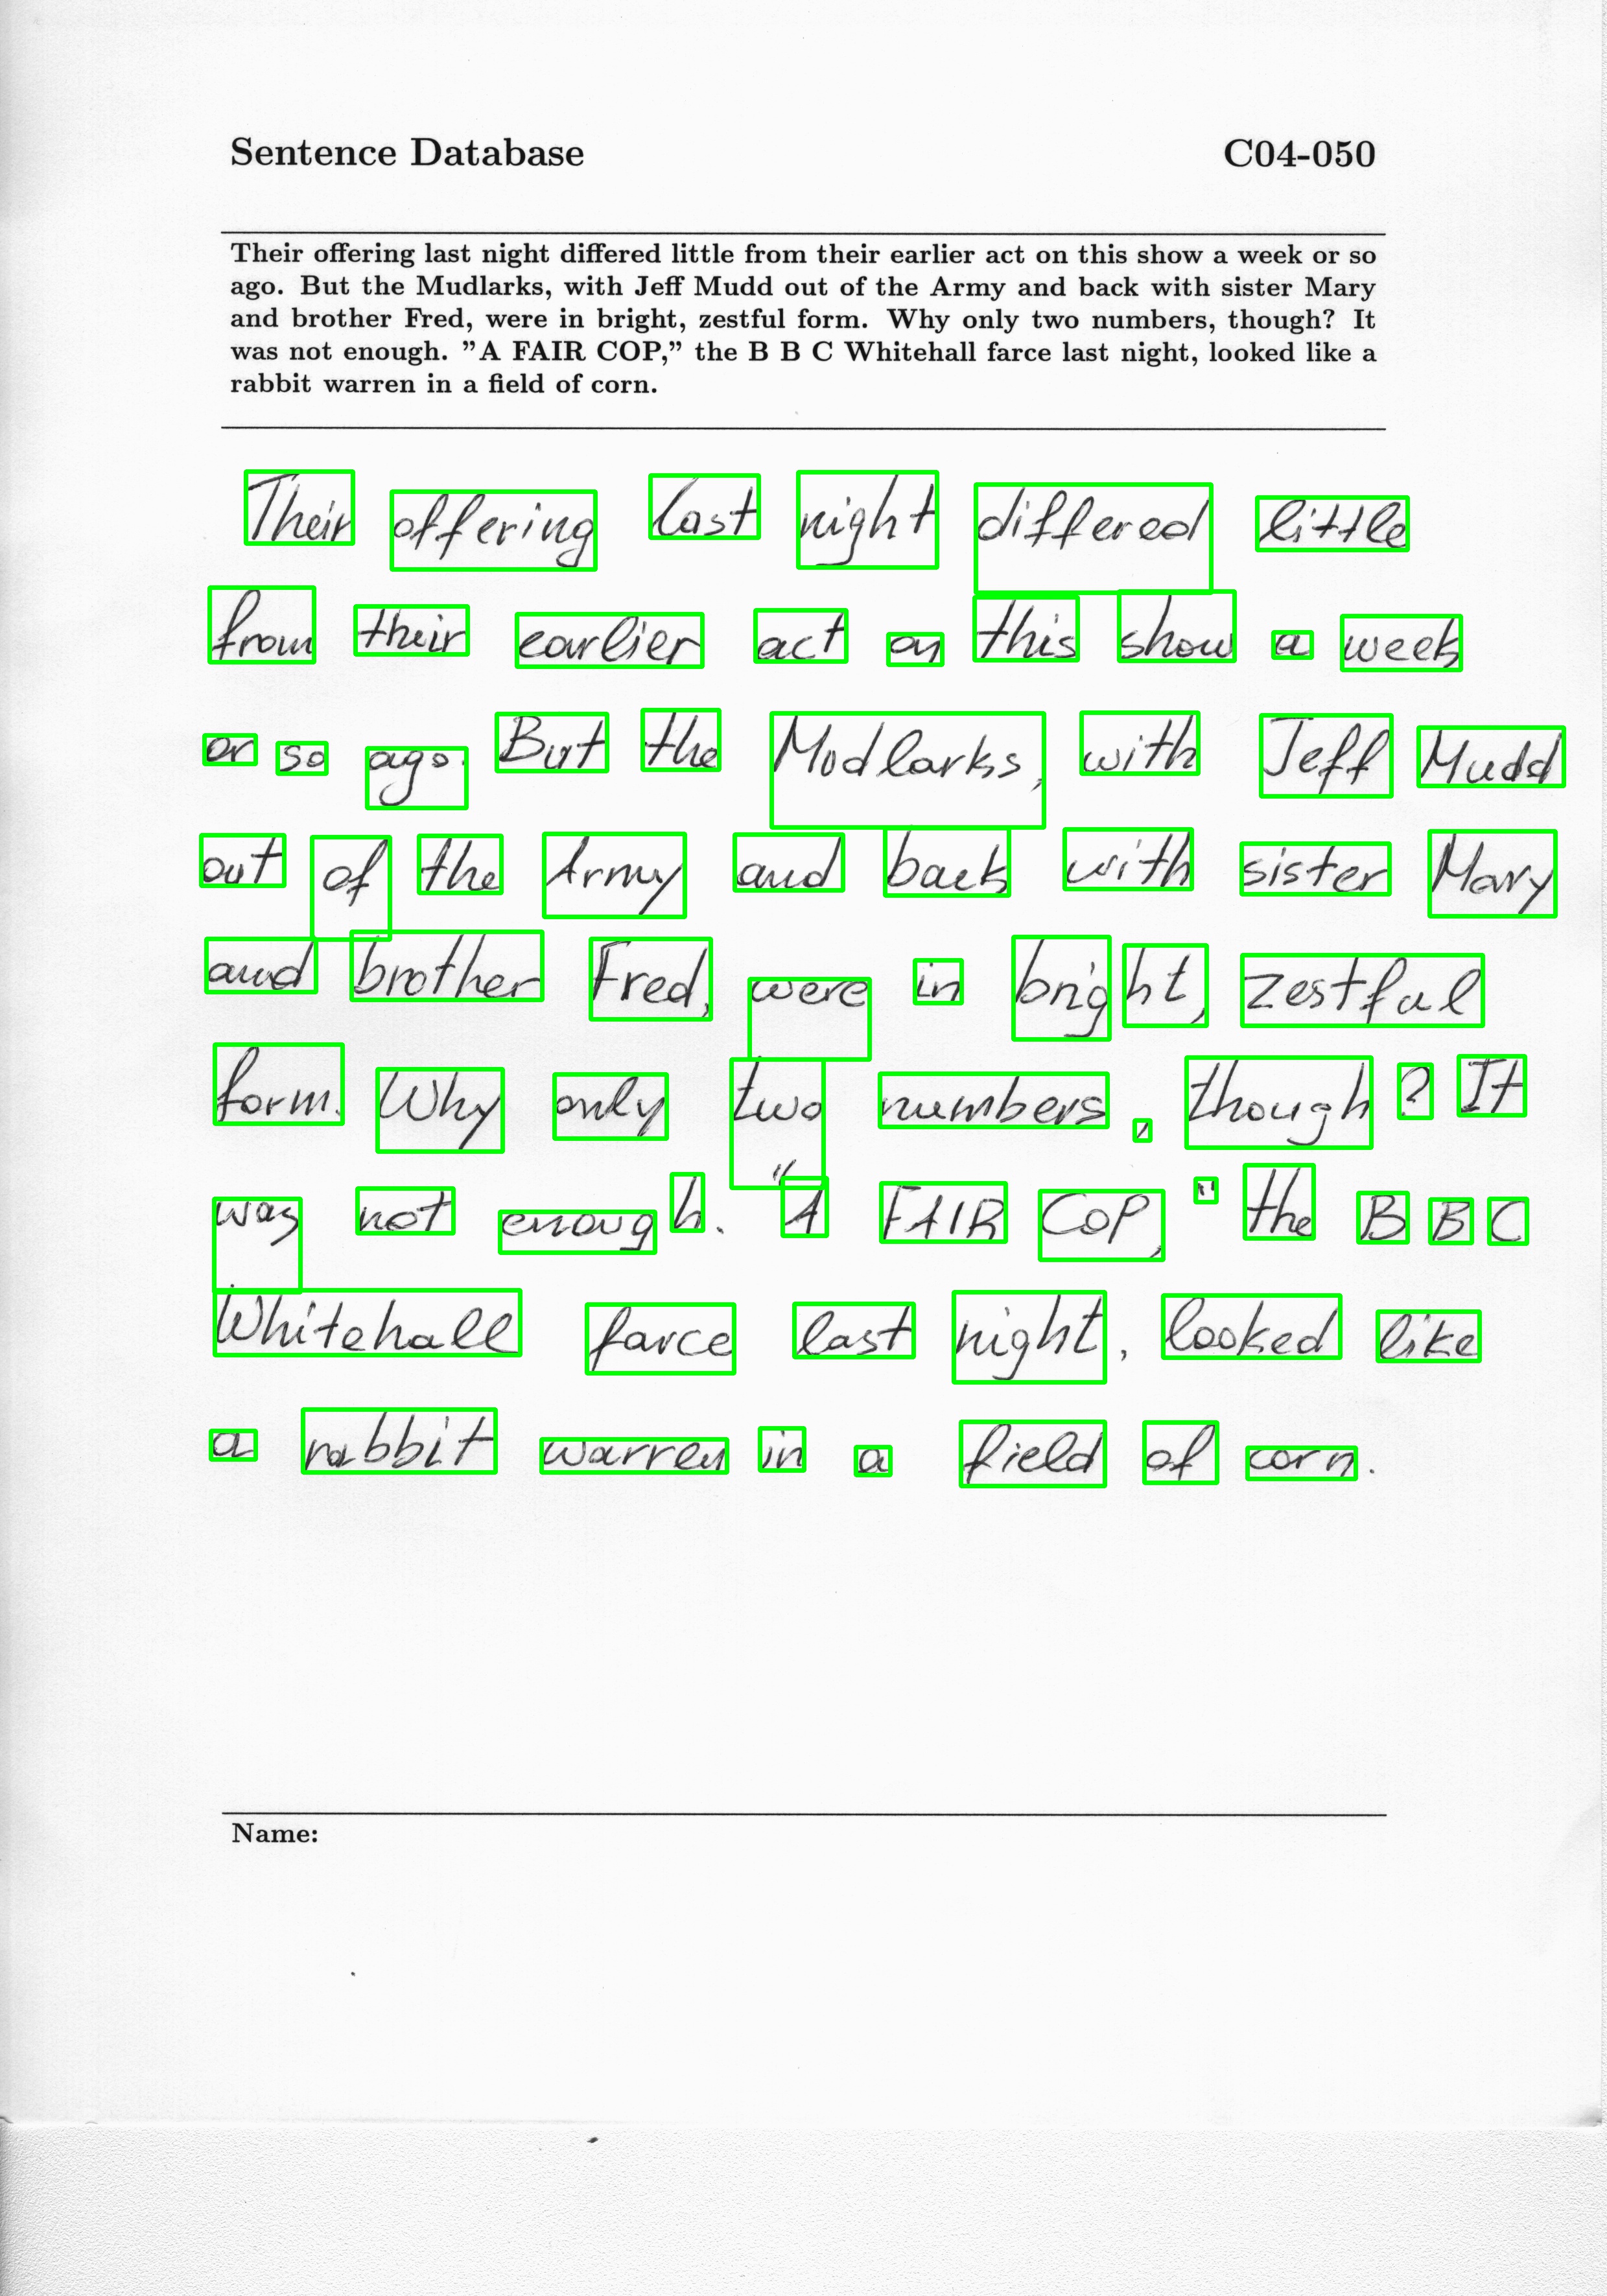 Sentence Database C04-050
Their offering last night differed little from their earlier act on this show a week or so
ago. But the Mudlarks, with Jeff Mudd out of the Army and back with sister Mary
and brother Fred, were in bright, zestful form. Why only two numbers, though? It
was not enough. "A FAIR COP," the B B C Whitehall farce last night, looked like a
rabbit warren in a field of corn.
Their offering last night differed little
from their earlier act on this show a week
or so ago. But the Modlarks, with Jeff Mudd
out of the Army and back with sister Mary
and brother Fred, were in bright, zestful
form. Why only two numbers, though? It
was not enough. "A FAIR COP," the B B C
Whitehall farce last night, looked like
a rabbit warren in a field of corn.
Name: